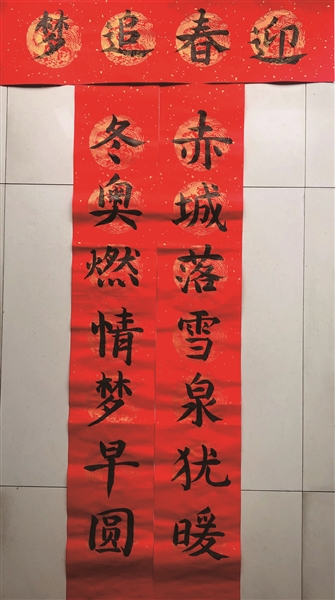 迎春追梦
赤城落雪泉犹暖
冬奥燃情梦早圆